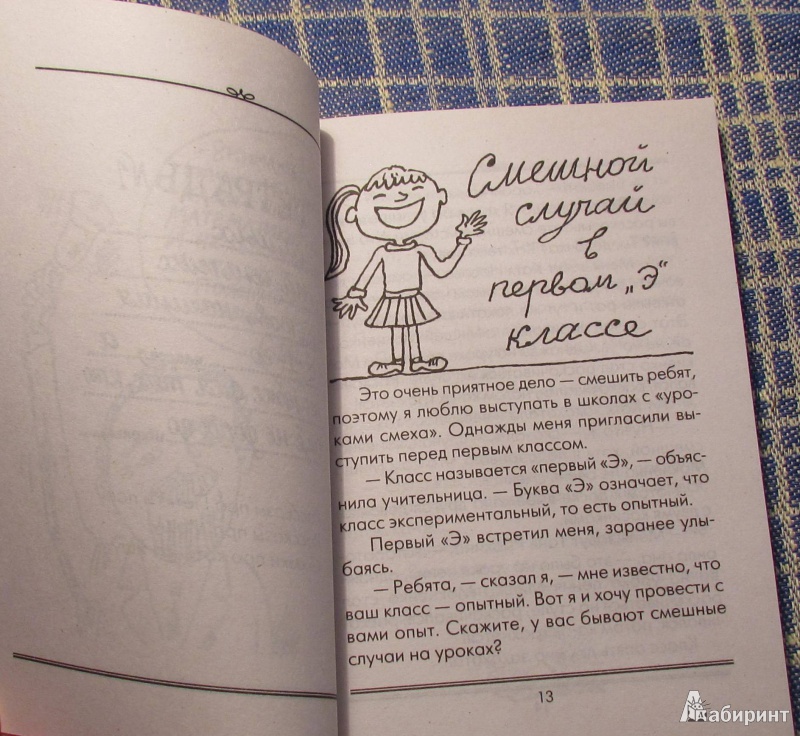 Смешной
случай
в
первом „Э“
классе
Это очень приятное дело — смешить ребят,
поэтому я люблю выступать в школах с «уро-
ками смеха». Однажды меня пригласили вы-
ступить перед первым классом.
— Класс называется «первый «Э», — объяс-
нила учительница. — Буква «Э» означает, что
класс экспериментальный, то есть опытный.
Первый «Э» встретил меня, заранее улы-
баясь.
— Ребята, — сказал я, — мне известно, что
ваш класс — опытный. Вот я и хочу провести с
вами опыт. Скажите, у вас бывают смешные
случаи на уроках?
13
Лабиринт